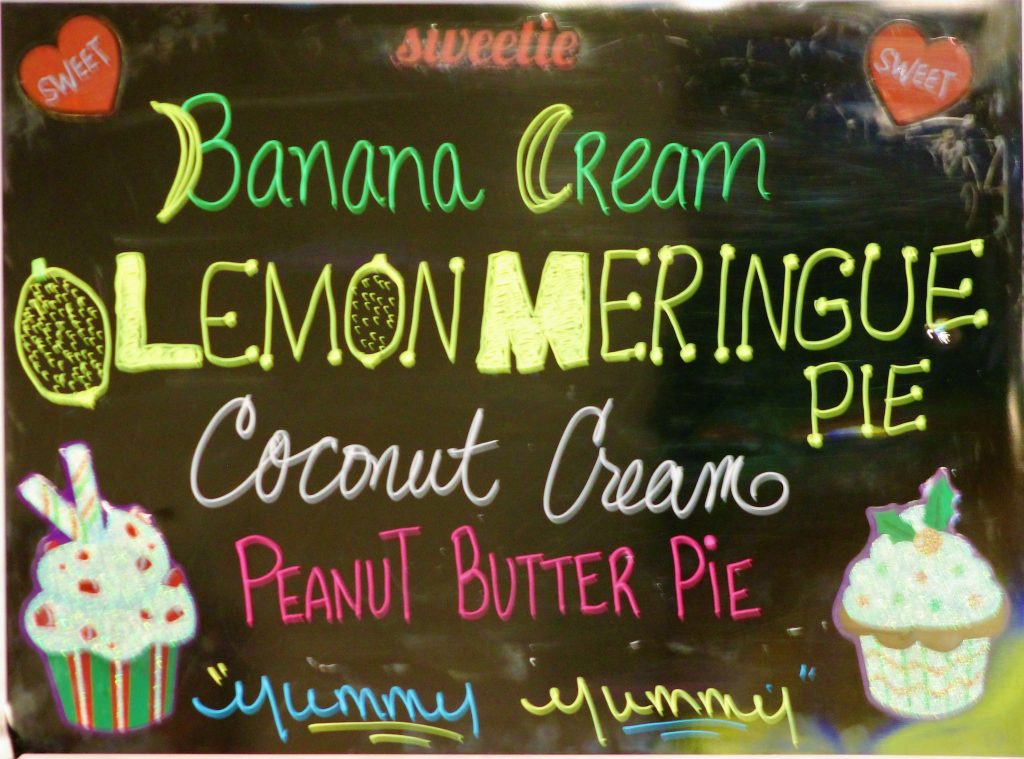 SWEET
sweetie
SWEET
Banana Cream
LEMON MERINGUE
PIE
Coconut Cream
PEANUT BUTTER PiE
"yummy yummy"